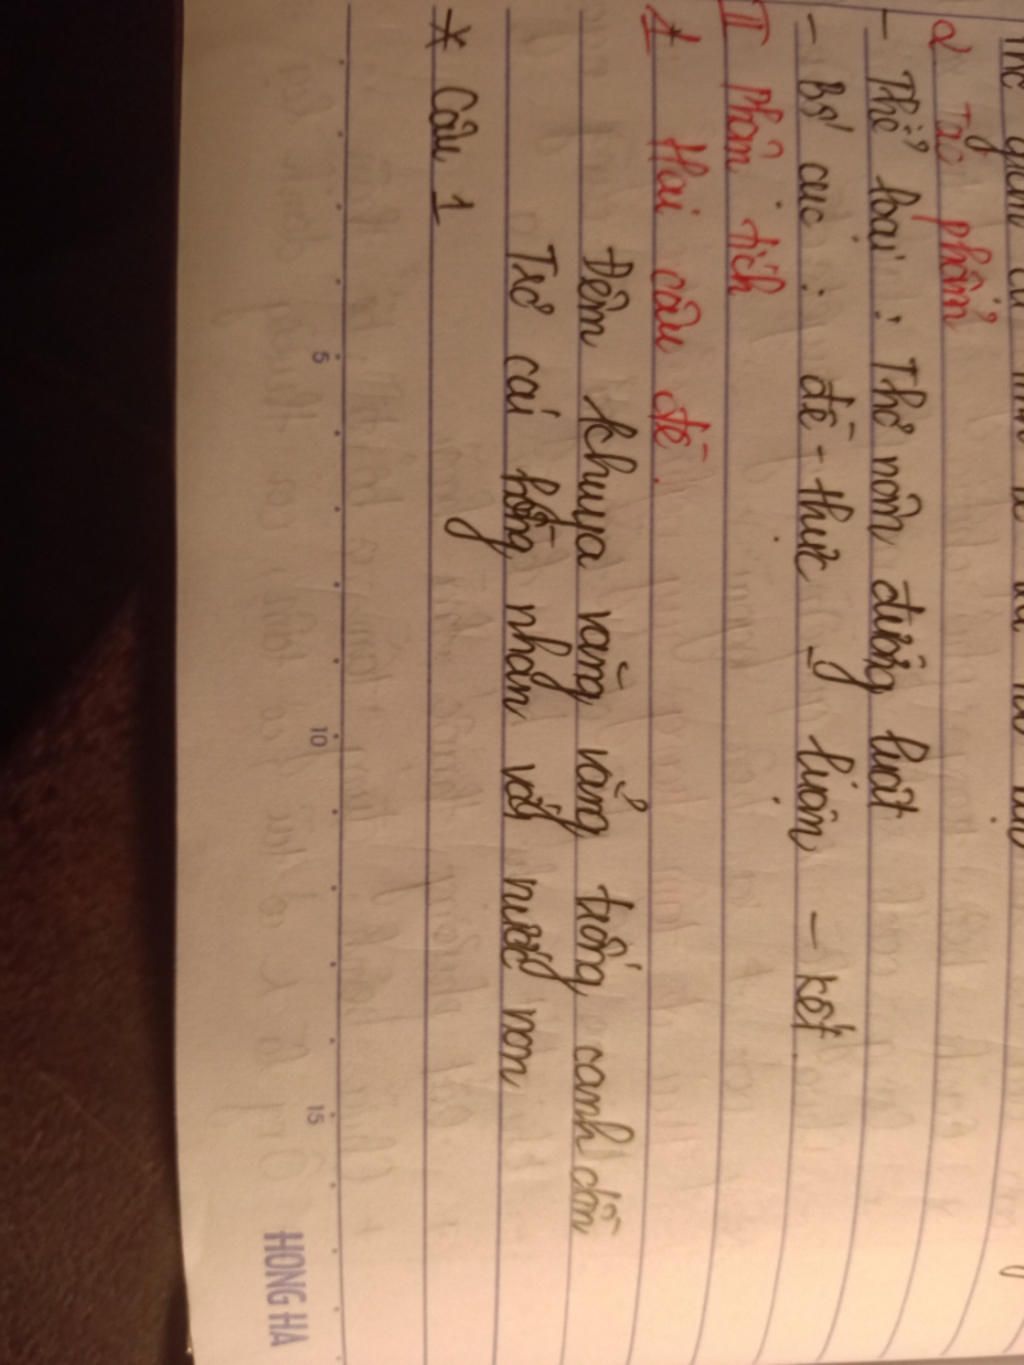 2 Tác phẩm
- Thể loại : Thơ nôm đường luật
- Bố cục : đề - thực - luận - kết
II Phân tích
1 Hai câu đề.
Đêm khuya văng vẳng trống canh dồn
Trơ cái hồng nhan với nước non
* Câu 1
5 10 15
HONG HA